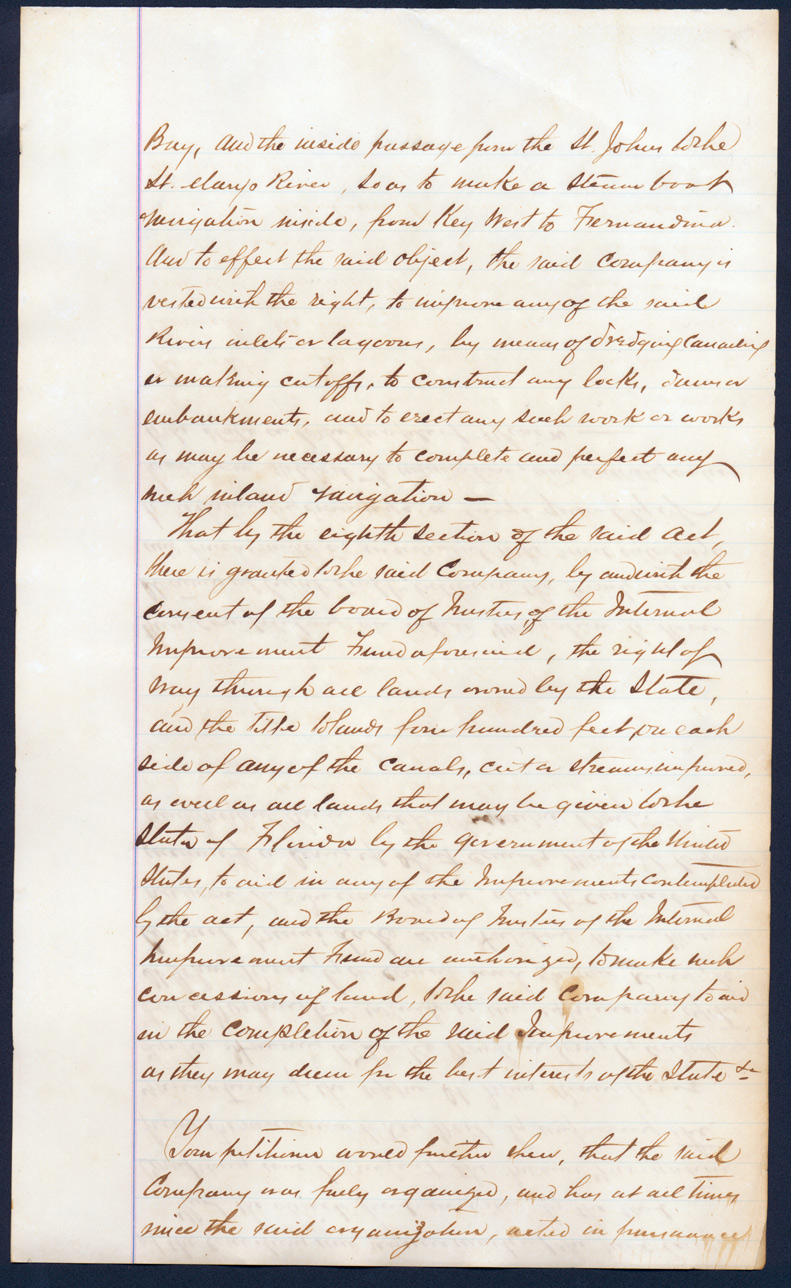 Bay, and the inside passage from the St. Johns to the
St. Mary's River, so as to make a steam boat
navigation inside, from Key West to Fernandina.
And to effect the said object, the said Company is
vested with the right, to improve any of the said
Rivers inlets or lagoons, by means of dredging Canaling
or making cutoffs, to construct any locks, dams or
embankments, and to erect any such work or works
as may be necessary to complete and perfect any
such inland navigation —
That by the eighth section of the said act,
there is granted to the said Company, by and with the
consent of the board of Trustees, of the Internal
Improvement Fund aforesaid, the right of
way through all lands owned by the State,
and the title to lands four hundred feet on each
side of any of the canals, cut or streams improved,
as well as all lands that may be given to the
State of Florida by the government of the United
States, to aid in any of the Improvements contemplated
by the act, and the Board of Trustees of the Internal
Improvement Fund are authorized, to make such
concessions of land, to the said Company to aid
in the completion of the said Improvements
as they may deem for the best interests of the State &c
Your petitioner would further shew, that the said
Company was fully organized, and has at all times
since the said organization, acted in pursuance